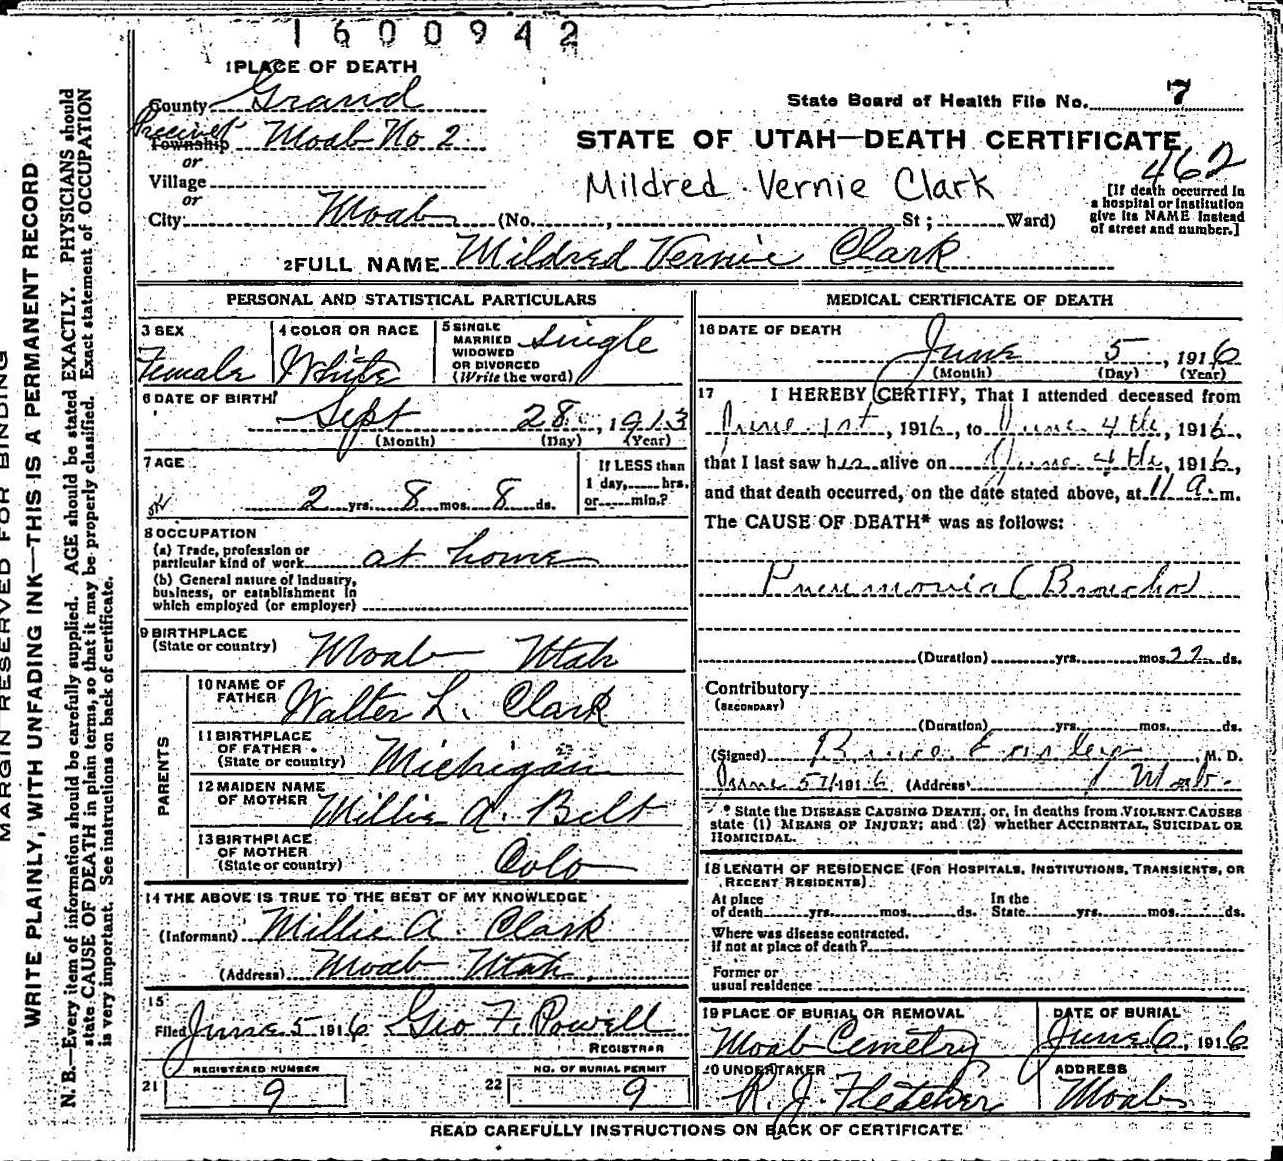 1600942
1 PLACE OF DEATH
County Grand
State Board of Health File No. 7
Precinct Township Moab No 2
STATE OF UTAH—DEATH CERTIFICATE
462
or
Village
Mildred Vernie Clark
[If death occurred in
a hospital or institution
give its NAME instead
of street and number.]
or
City Moab (No. , St ; Ward)
2 FULL NAME Mildred Vernie Clark
PERSONAL AND STATISTICAL PARTICULARS
3 SEX
Female
4 COLOR OR RACE
White
5 SINGLE
MARRIED
WIDOWED
OR DIVORCED
(Write the word)
single
6 DATE OF BIRTH
Sept 28, 1913
(Month) (Day) (Year)
7 AGE
2 yrs. 8 mos. 8 ds.
If LESS than
1 day, hrs.
or min.?
8 OCCUPATION
(a) Trade, profession or
particular kind of work at home
(b) General nature of industry,
business, or establishment in
which employed (or employer)
9 BIRTHPLACE
(State or country) Moab Utah
PARENTS
10 NAME OF
FATHER Walter L. Clark
11 BIRTHPLACE
OF FATHER
(State or country) Michigan
12 MAIDEN NAME
OF MOTHER Millie A. Belt
13 BIRTHPLACE
OF MOTHER
(State or country) Colo
14 THE ABOVE IS TRUE TO THE BEST OF MY KNOWLEDGE
(Informant) Millie A. Clark
(Address) Moab Utah
15
Filed June 5 1916 Geo F. Powell
REGISTRAR
REGISTERED NUMBER
21 9
NO. OF BURIAL PERMIT
22 9
MEDICAL CERTIFICATE OF DEATH
16 DATE OF DEATH
June 5, 1916
(Month) (Day) (Year)
17 I HEREBY CERTIFY, That I attended deceased from
June 1st, 1916, to June 4th, 1916,
that I last saw her alive on June 4th, 1916,
and that death occurred, on the date stated above, at 11 a. m.
The CAUSE OF DEATH* was as follows:
Pneumonia (Broncho)
(Duration) yrs. mos. 22 ds.
Contributory
(SECONDARY)
(Duration) yrs. mos. ds.
(Signed) M. D.
June 5th 1916 (Address) Moab
* State the DISEASE CAUSING DEATH, or, in deaths from VIOLENT CAUSES
state (1) MEANS OF INJURY; and (2) whether ACCIDENTAL, SUICIDAL OR
HOMICIDAL.
18 LENGTH OF RESIDENCE (FOR HOSPITALS, INSTITUTIONS, TRANSIENTS, OR
RECENT RESIDENTS).
At place
of death yrs. mos. ds.
In the
State yrs. mos. ds.
Where was disease contracted.
If not at place of death?
Former or
usual residence
19 PLACE OF BURIAL OR REMOVAL
Moab Cemetry
DATE OF BURIAL
June 6, 1916
20 UNDERTAKER
R. J. Fletcher
ADDRESS
Moab
READ CAREFULLY INSTRUCTIONS ON BACK OF CERTIFICATE
MARGIN RESERVED FOR BINDING
WRITE PLAINLY, WITH UNFADING INK—THIS IS A PERMANENT RECORD
N. B.—Every item of information should be carefully supplied. AGE should be stated EXACTLY. PHYSICIANS should
state CAUSE OF DEATH in plain terms, so that it may be properly classified. Exact statement of OCCUPATION
is very important. See instructions on back of certificate.